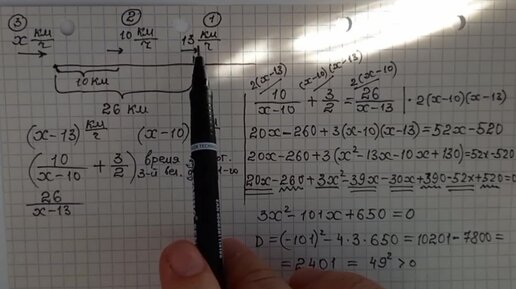 ③ ② ①
x км/ч 10 км/ч 13 км/ч
10 км
26 км
(x-13) км/ч (x-10)
(10/(x-10) + 3/2) время 3-й вел.
26/(x-13)
2(x-13) (x-10)(x-13) 2(x-10)
10/(x-10) + 3/2 = 26/(x-13) | · 2(x-10)(x-13)
20x-260+3(x-10)(x-13)=52x-520
20x-260+3(x²-13x-10x+130)=52x-520
20x-260+3x²-39x-30x+390-52x+520=0
3x²-101x+650=0
D=(-101)²-4·3·650=10201-7800=
=2401=49²>0